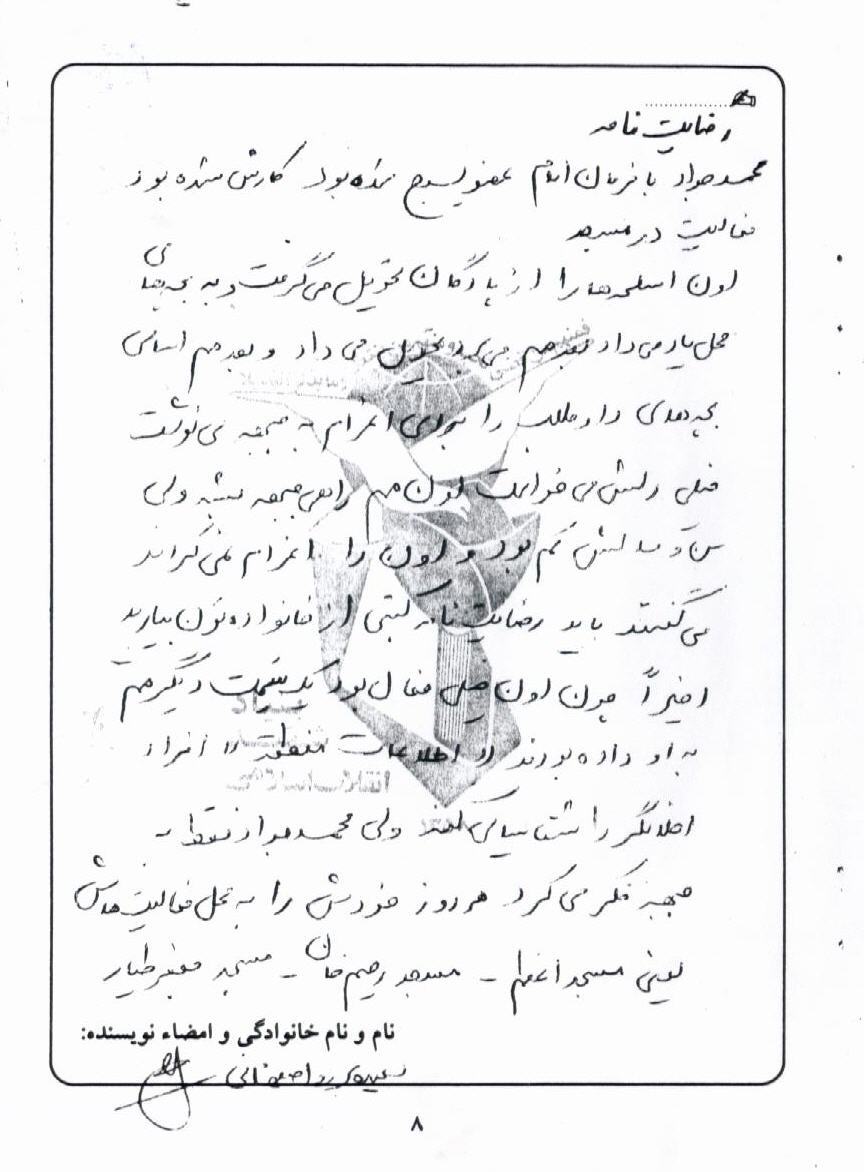 رضایت نامه
محمدجواد با فرمان امام عضو بسیج شده بود کارش شده بود
فعالیت در مسجد
اون اسلحه‌ها را از پادگان تحویل می‌گرفت و به بچه‌های
محل یاد می‌داد بعد هم می‌برد تحویل می داد و بعد هم اسامی
بچه‌های داوطلب را برای اعزام به جبهه می نوشت
خیلی دلش می خواست اون هم راهی جبهه بشه ولی
سن و سالش کم بود و اون را اعزام نمی کردند
می گفتند باید رضایت نامه کتبی از خانواده تون بیارید
اخیراً چون اون خیلی فعال بود یک قسمت دیگر هم
به او داده بودند اطلاعات منطقه افراد
اخلالگر را شناسایی کند ولی محمدجواد فقط به
جبهه فکر می کرد هر روز خودش را به محل فعالیت‌هاش
یعنی مسجد اعظم - مسجد رحیم خان - مسجد جعفر طیار
نام و نام خانوادگی و امضاء نویسنده:
اصفهانی
۸